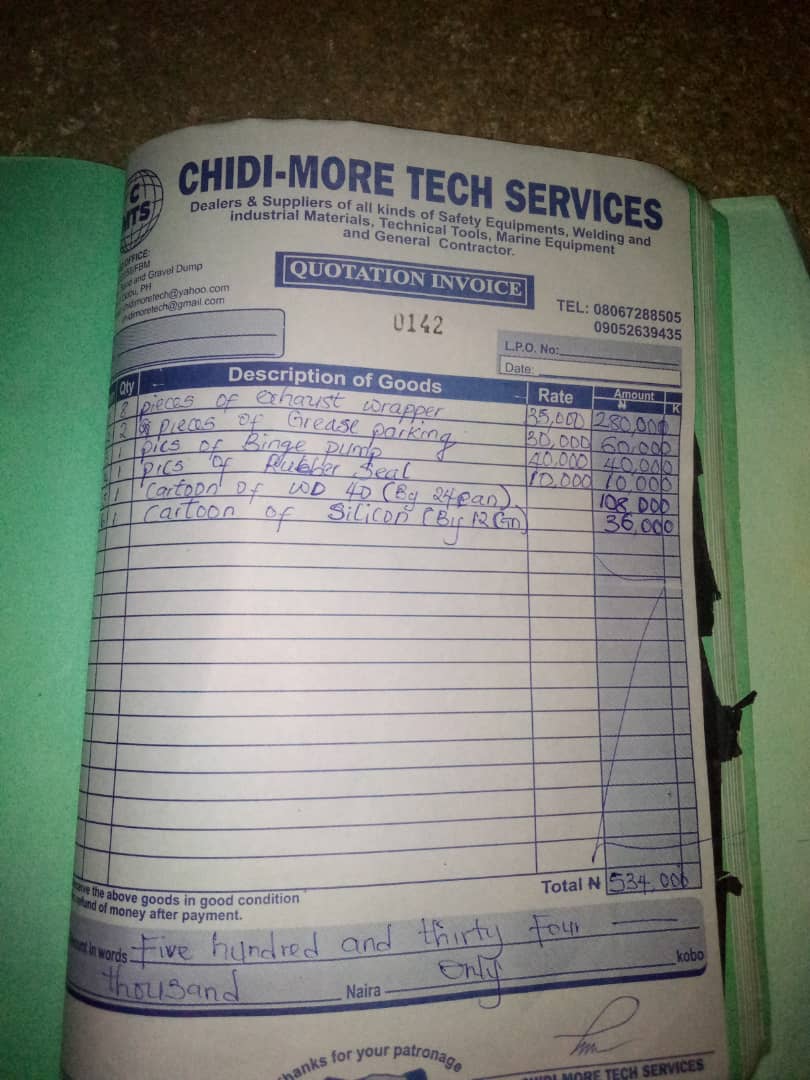 CHIDI-MORE TECH SERVICES
Dealers & Suppliers of all kinds of Safety Equipments, Welding and
industrial Materials, Technical Tools, Marine Equipment
and General Contractor.
OFFICE:
and Gravel Dump
PH
moretech@yahoo.com
moretech@gmail.com
QUOTATION INVOICE
TEL: 08067288505
09052639435
0142
L.P.O. No:
Date:
Qty Description of Goods Rate Amount
₦ K
pieces of exhaust wrapper 35,000 280,000
2 pieces of Grease parking 30,000 60,000
1 pics of Binge pump 40,000 40,000
1 pics of Rubber Seal 10,000 10,000
1 Cartoon of WD 40 (By 24 can) 108,000
1 Cartoon of Silicon (By 12 108,000 36,000
Total ₦ 534,000
the above goods in good condition
of money after payment.
in words Five hundred and thirty Four
thousand Naira Only kobo
Thanks for your patronage
MORE TECH SERVICES